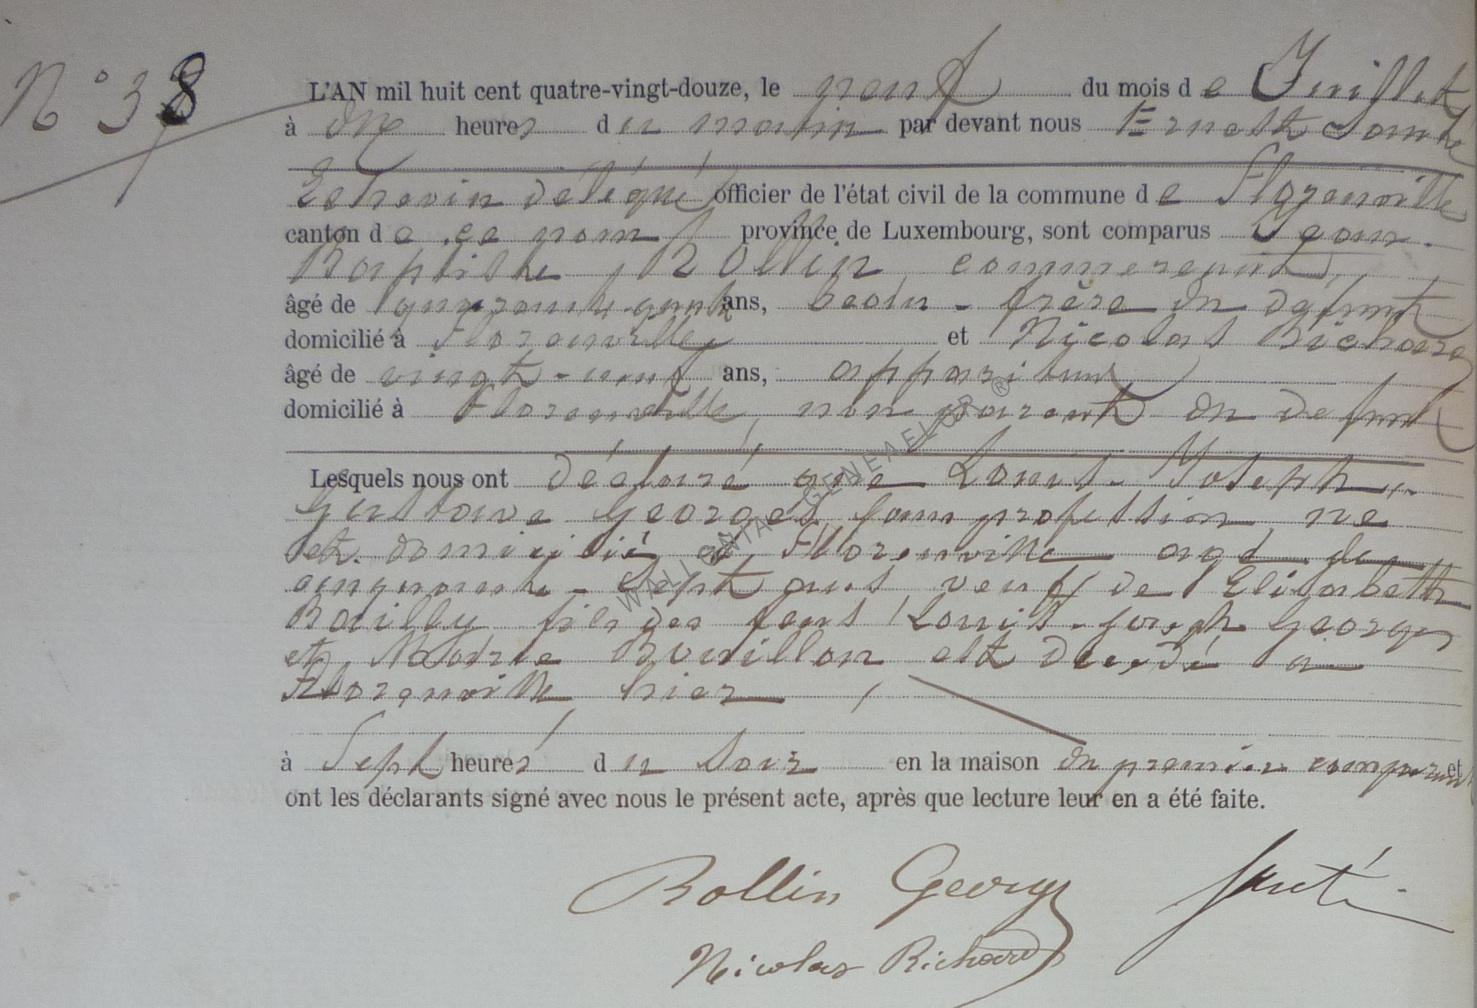 N° 38
L'AN mil huit cent quatre-vingt-douze, le neuf du mois de Juillet
à onze heures du matin par devant nous Ernest Santé
Echevin délégué officier de l'état civil de la commune de Florenville
canton de ce nom province de Luxembourg, sont comparus Jean.
Baptiste Rollin commerçant,
âgé de quarante- ans, beau-frère du défunt
domicilié à Florenville et Nicolas Richard
âgé de vingt-neuf ans, appariteur
domicilié à Florenville, non parent du defunt
Lesquels nous ont déclaré que Louis-Joseph-
Gustave Georges sans profession né
et domicilié à Florenville agé de
cinquante-sept ans veuf de Elisabeth
Bailly fils des feus Louis-Joseph Georges
et Marie Bouillon est décédé à
Florenville hier
à Sept heures du soir en la maison du premier comparant et
ont les déclarants signé avec nous le présent acte, après que lecture leur en a été faite.
Rollin Georges Santé
Nicolas Richard
WALLONIA GENEAELOR ®